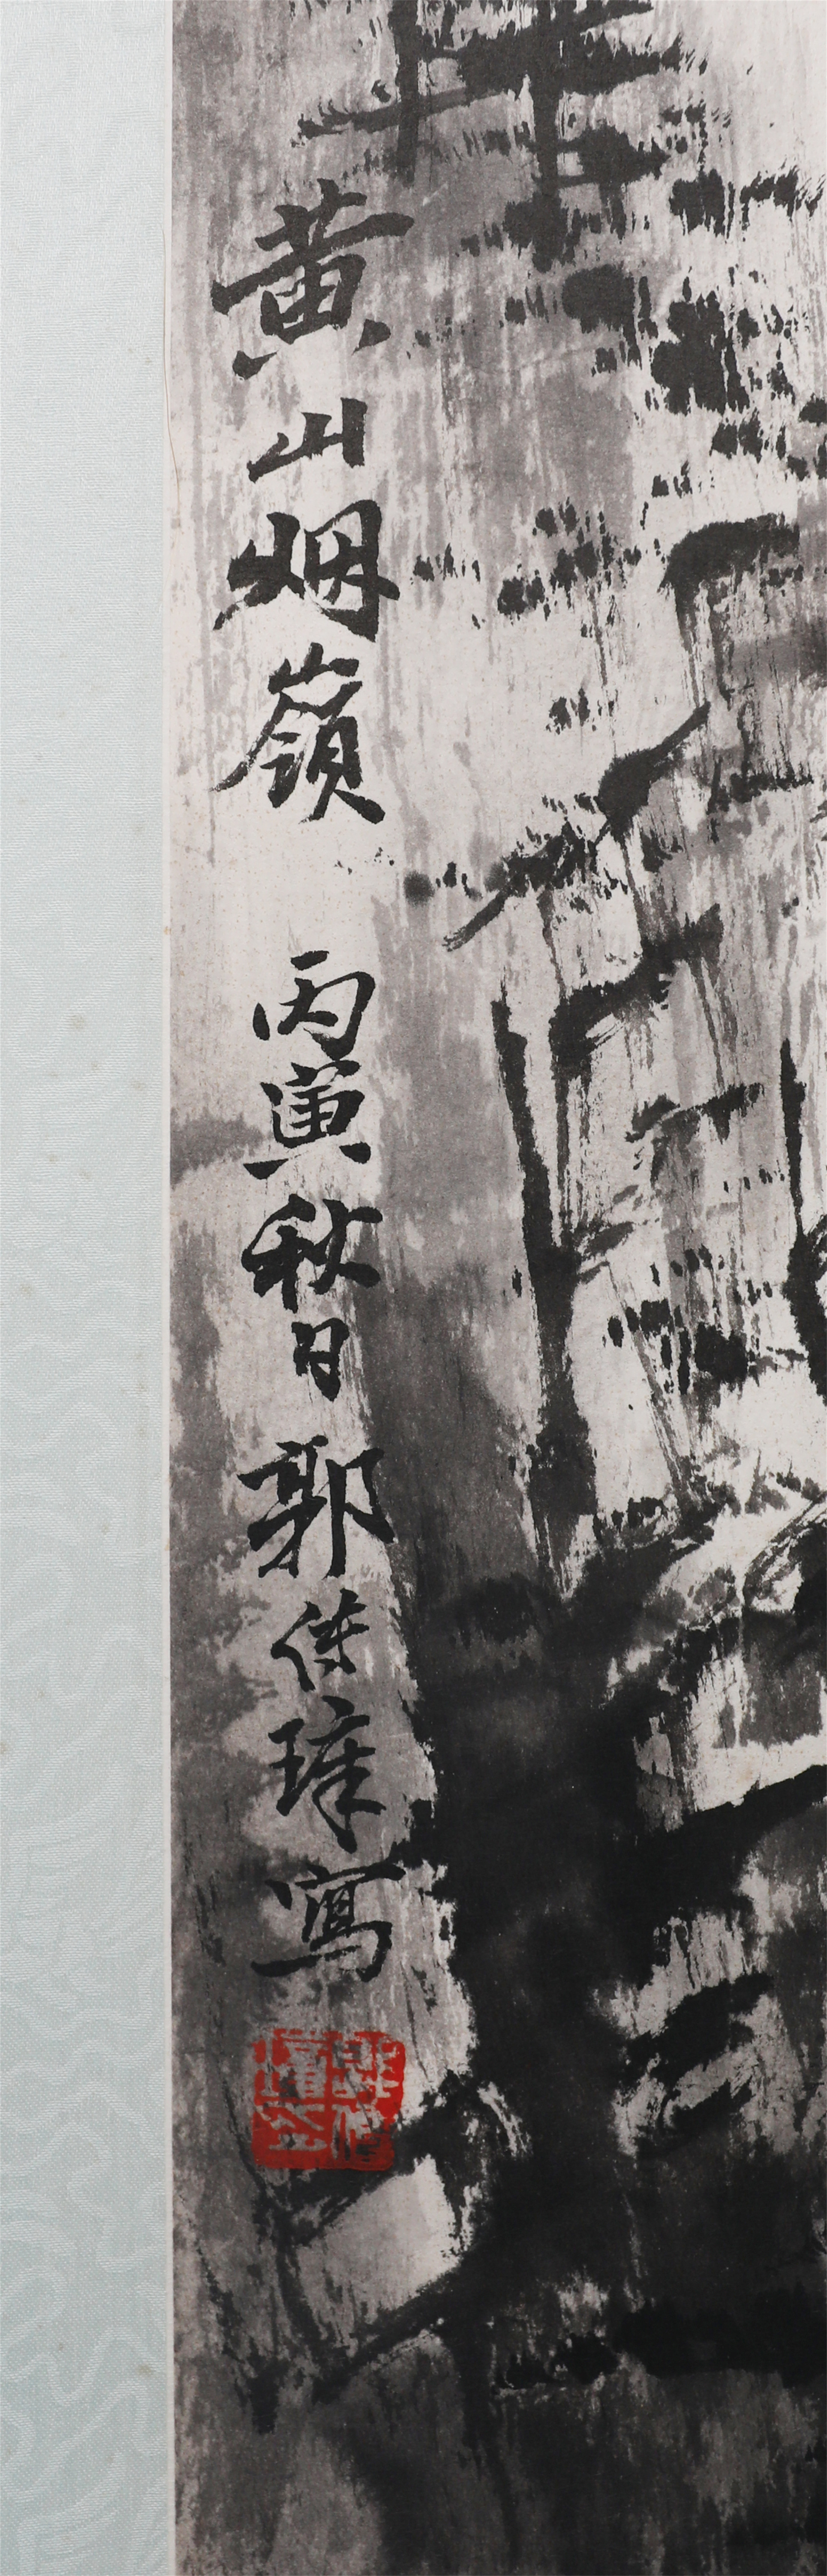 黄山烟嶺 丙寅秋日 郭传璋寫